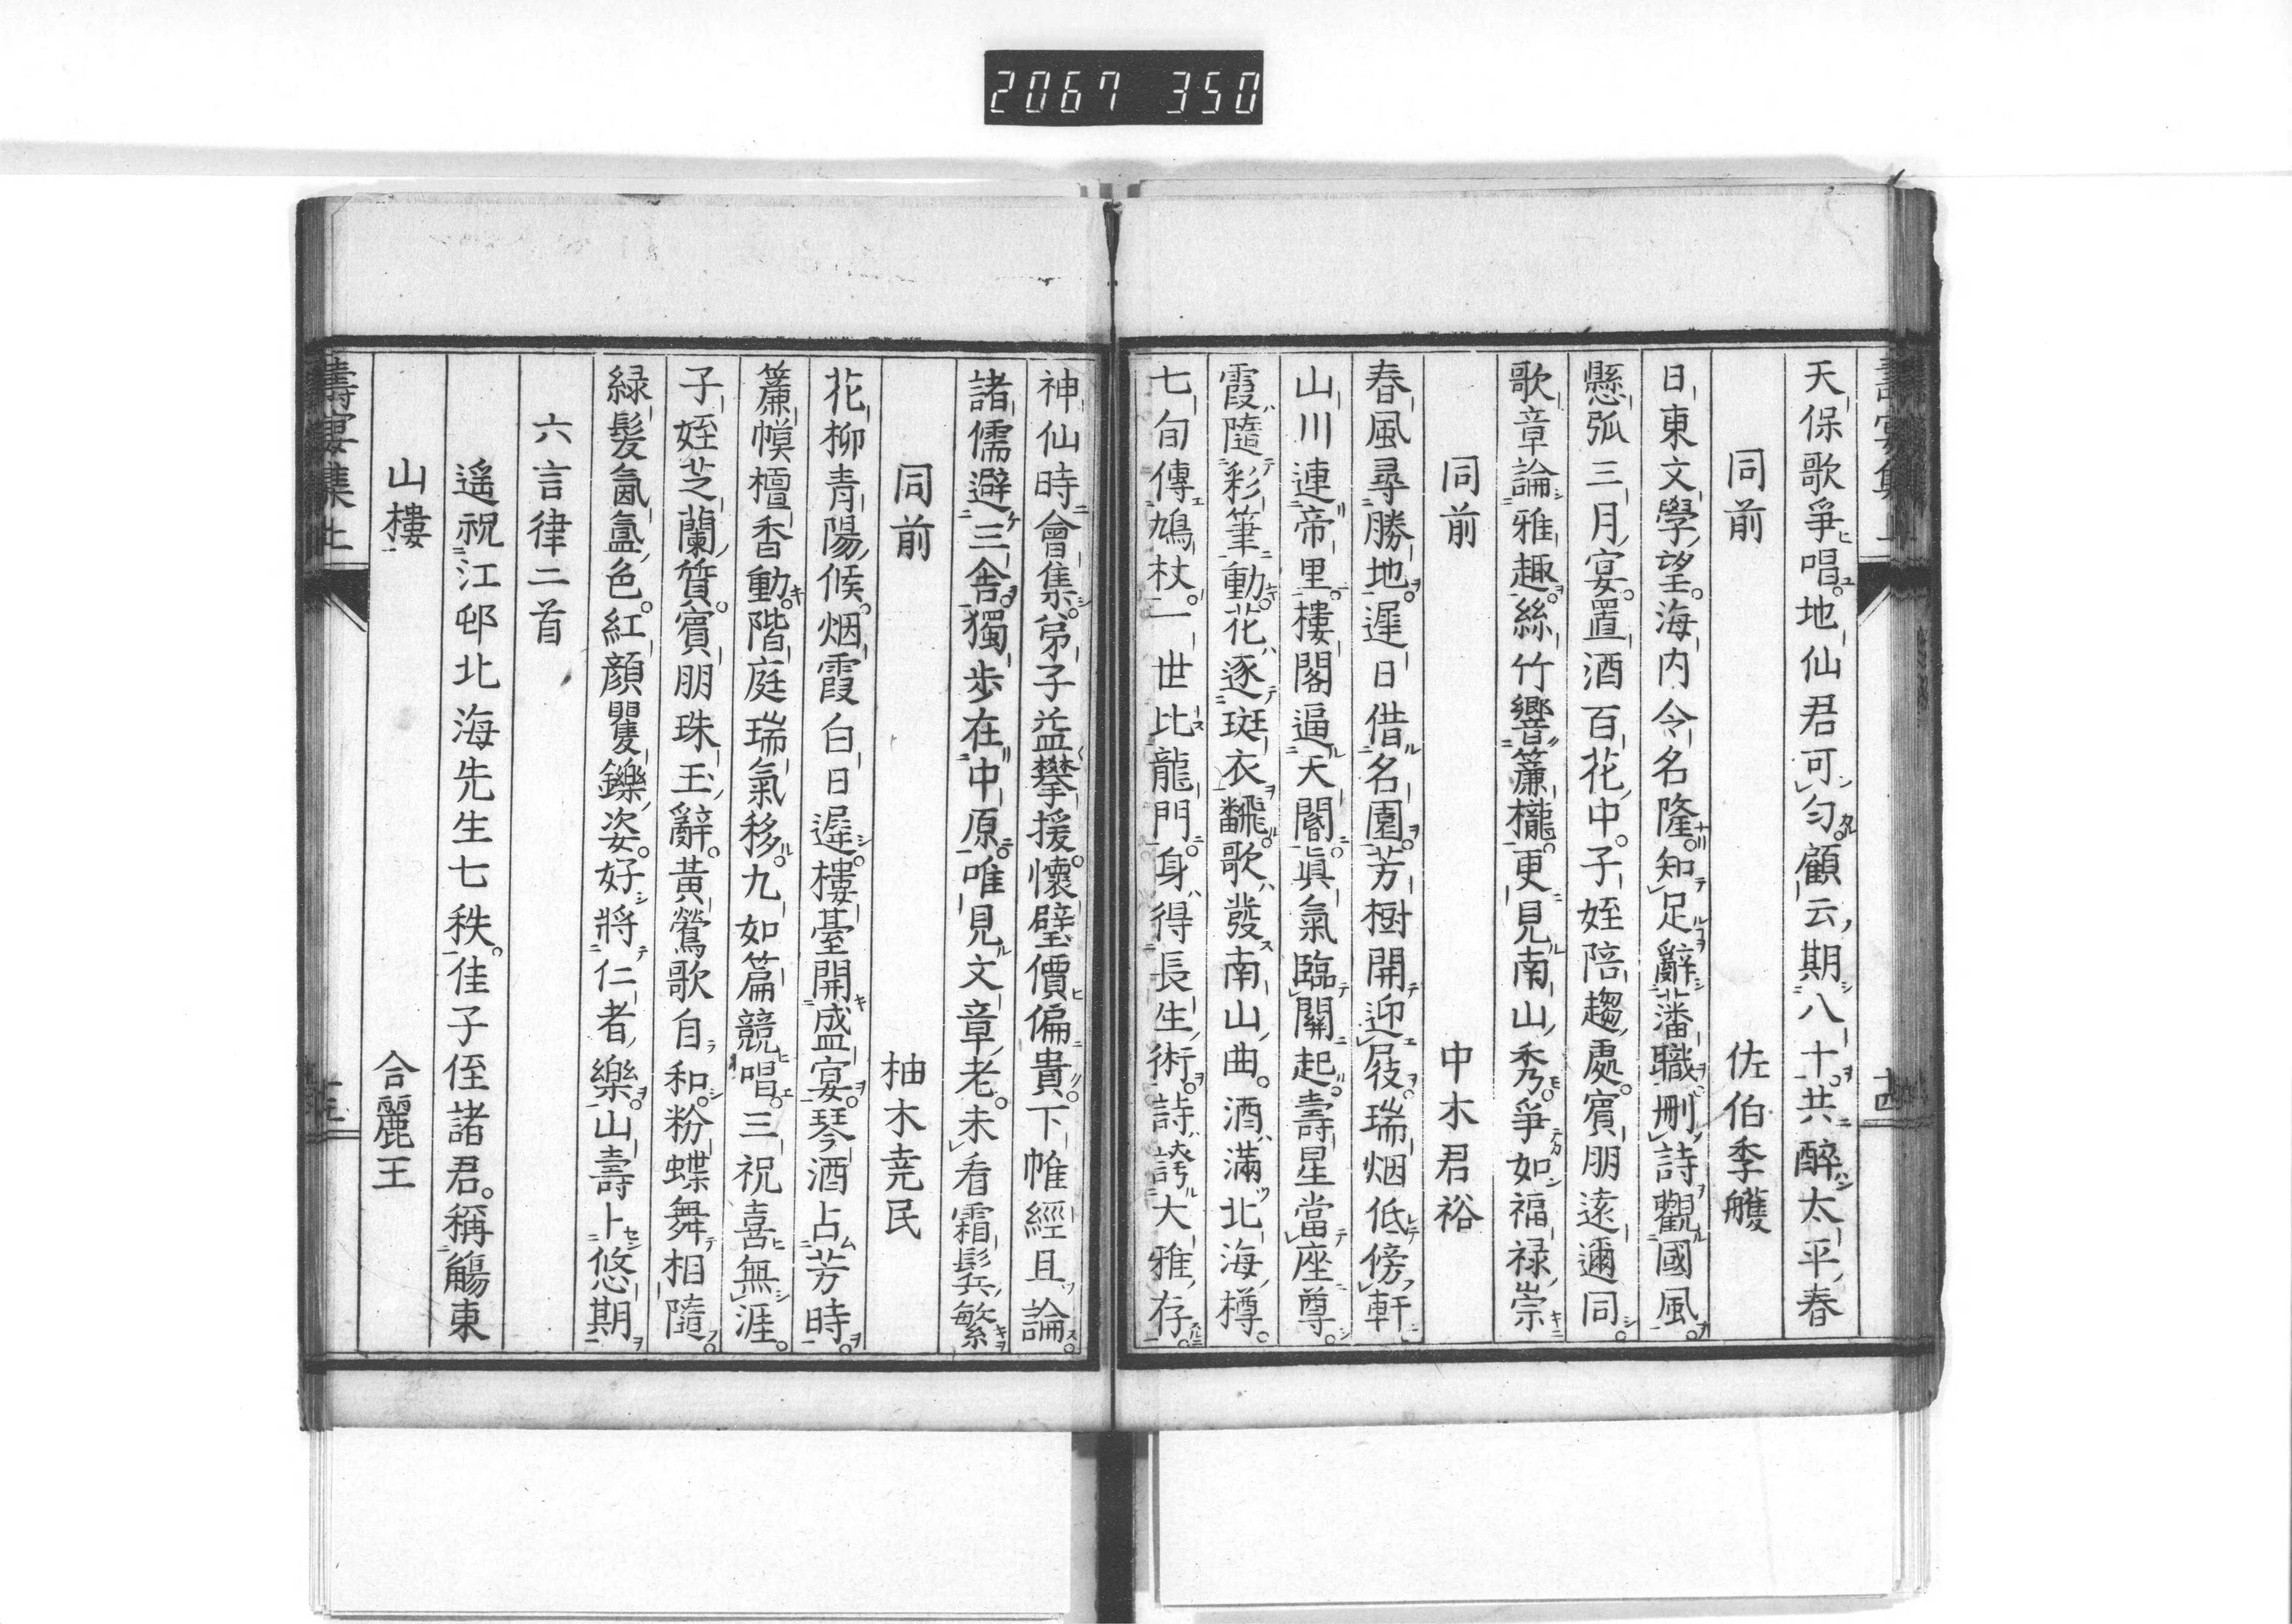 2067 350
壽宴集上
天保歌爭唱地仙君可勻顧云期八十共醉太平春
同前 佐伯季艧
日東文學望海内令名隆知足辭藩職刪詩觀國風
懸弧三月宴置酒百花中子姪陪趨處賓朋遠邇同
歌章論雅趣絲竹響簾櫳更見南山秀爭如福禄崇
同前 中木君裕
春風尋勝地遲日借名園芳樹開迎屐瑞烟低傍軒
山川連帝里樓閣逼天閽眞氣臨關起壽星當座尊
霞隨彩筆動花逐斑衣飜歌發南山曲酒滿北海樽
七旬傳鳩杖一世比龍門身得長生術詩誇大雅存
神仙時會集弟子益攀援懷璧價偏貴下帷經且論
諸儒避三舍獨步在中原唯見文章老未看霜鬂繁
同前 柚木尭民
花柳青陽候烟霞白日遲樓臺開盛宴琴酒占芳時
簾幙檀香動階庭瑞氣移九如篇競唱三祝喜無涯
子姪芝蘭質賓朋珠玉辭黃鶯歌自和粉蝶舞相隨
緑髪氤氳色紅顔矍鑠姿好將仁者樂山壽卜悠期
六言律二首
遥祝江邨北海先生七秩佳子侄諸君稱觴東
山樓 合麗王
壽宴集上